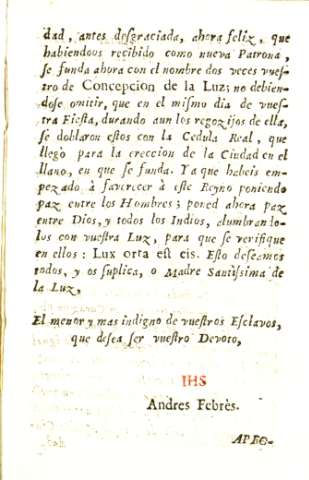 dad, antes desgraciada, ahora feliz, que
habiendoos recibido como nueva Patrona,
se funda ahora con el nombre dos veces vues-
tro de Concepcion de la Luz; no debien-
dose omitir, que en el mismo dia de vues-
tra Fiesta, durando aun los regozijos de ella,
se doblaron estos con la Cedula Real, que
llegò para la ereccion de la Ciudad en el
llano, en que se funda. Ya que habeis em-
pezado à favorecer à este Reyno poniendo
paz entre los Hombres; poned ahora paz
entre Dios, y todos los Indios, alumbrando-
los con vuestra Luz, para que se verifique
en ellos: Lux orta est eis. Esto deseamos
todos, y os suplica, o Madre Santissima de
la Luz,
El menor y mas indigno de vuestros Esclavos,
que desea ser vuestro Devoto,
IHS
Andres Febrès.
APRO-